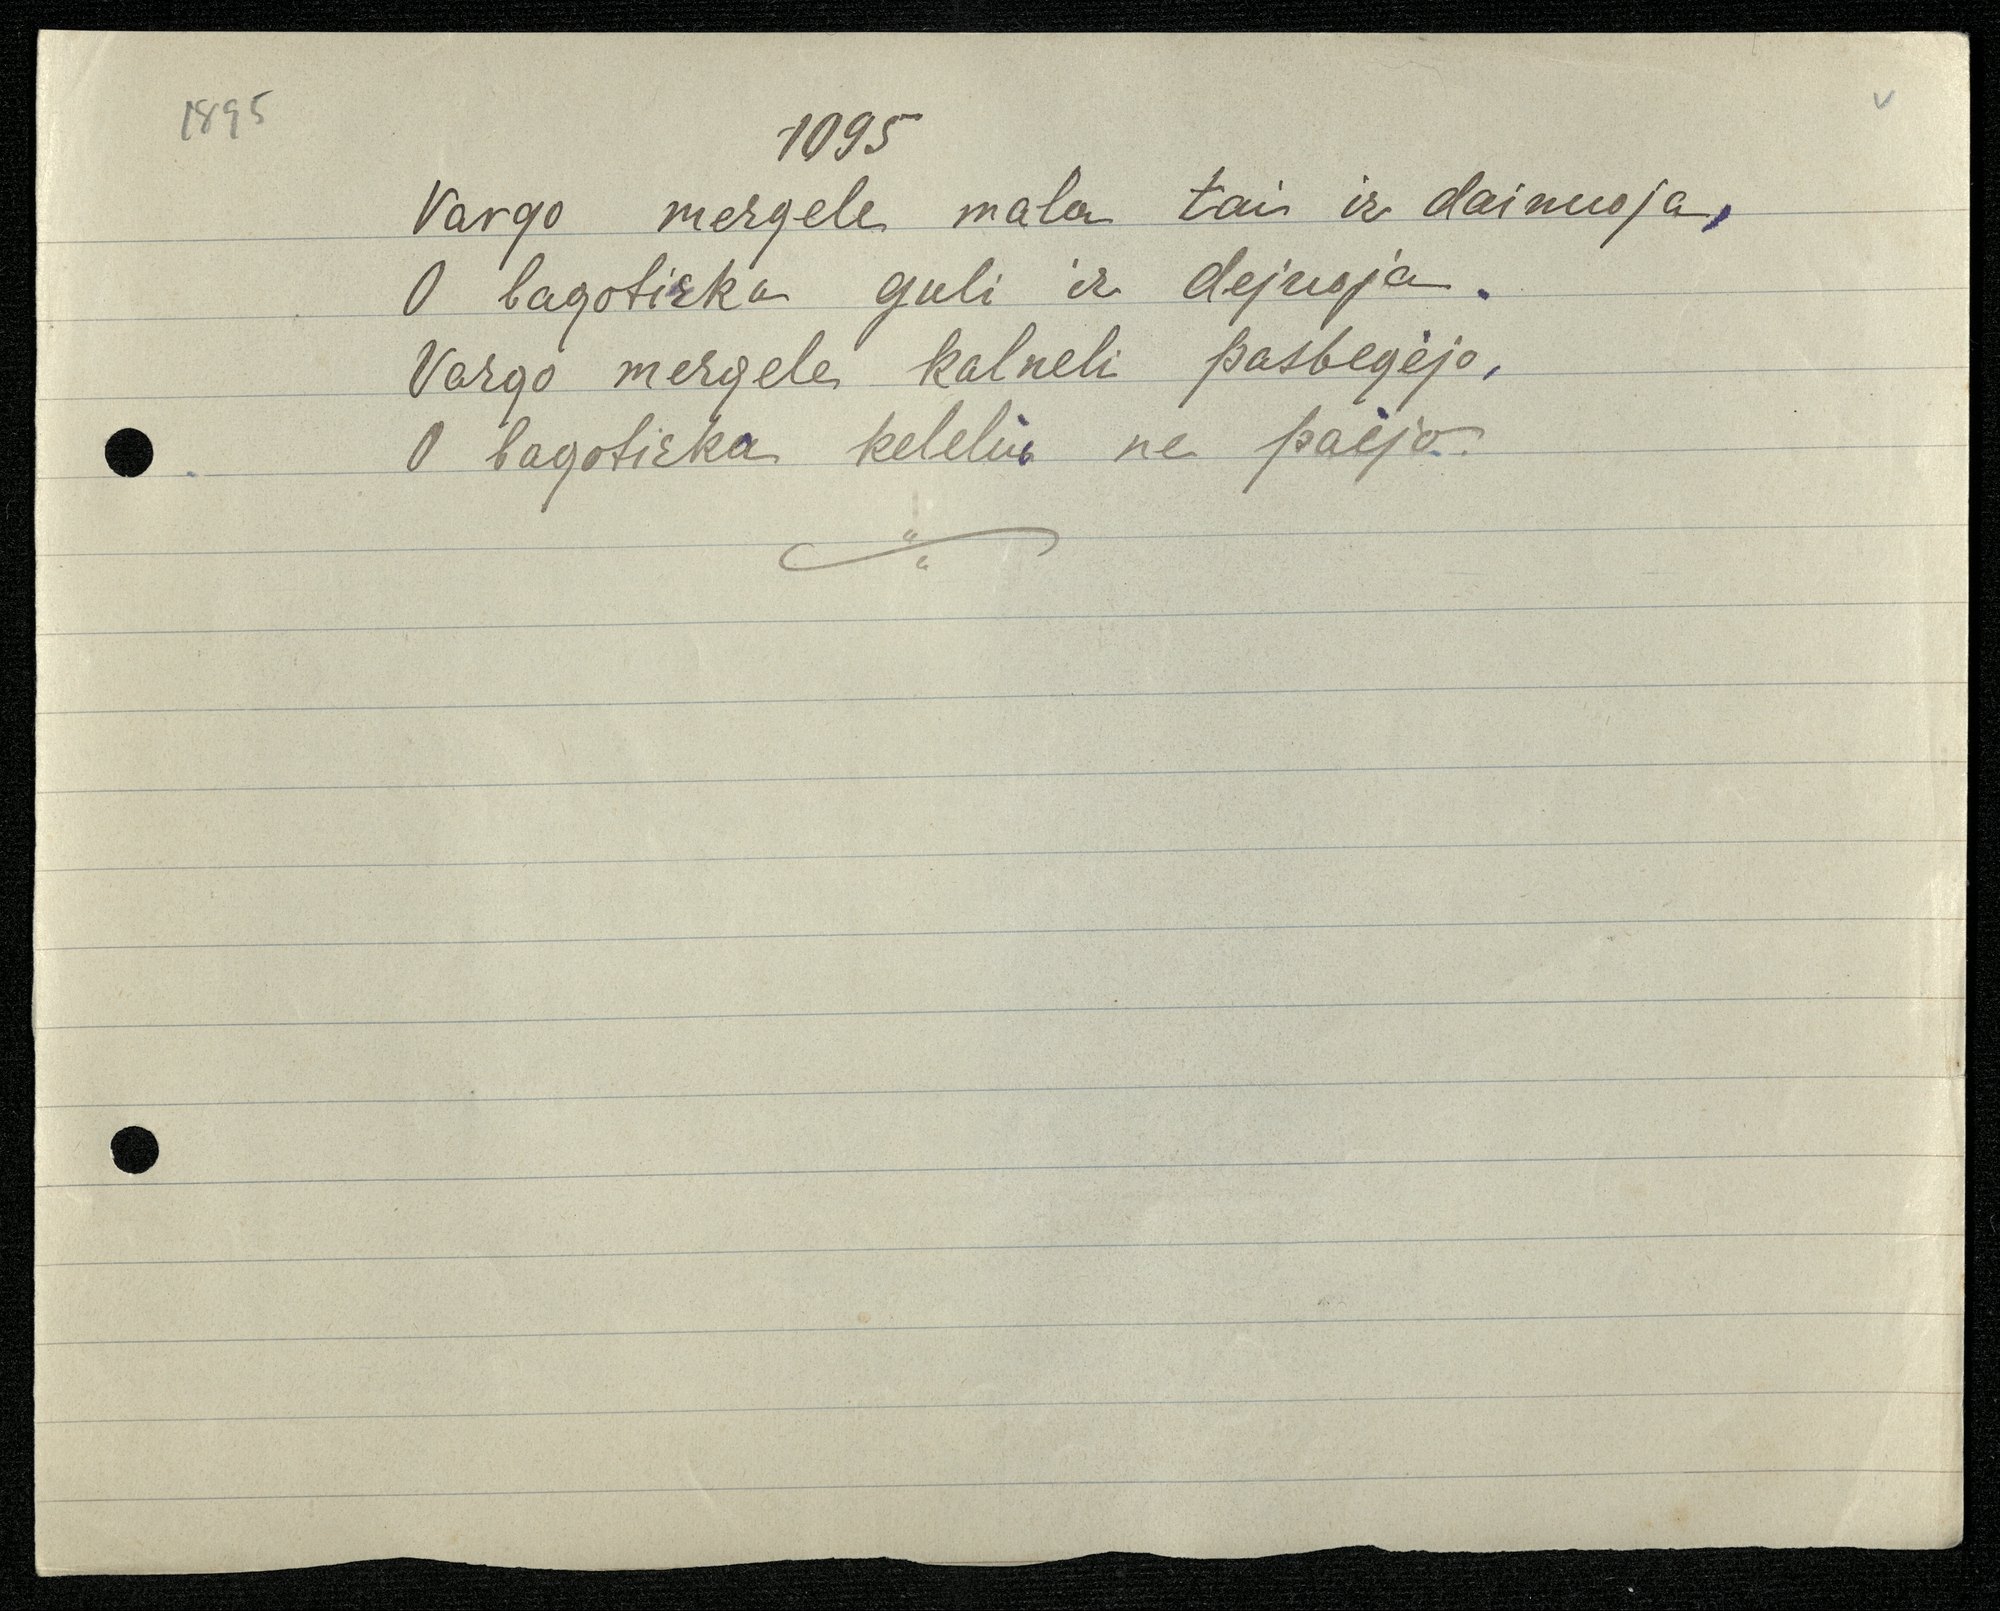 1895
v
1095
Vargo mergele mala tai ir dainuoja,
O bagotirka guli ir dejuoja.
Vargo mergele kalneli pasbegėjo,
O bagotirka keleliu ne paėjo.